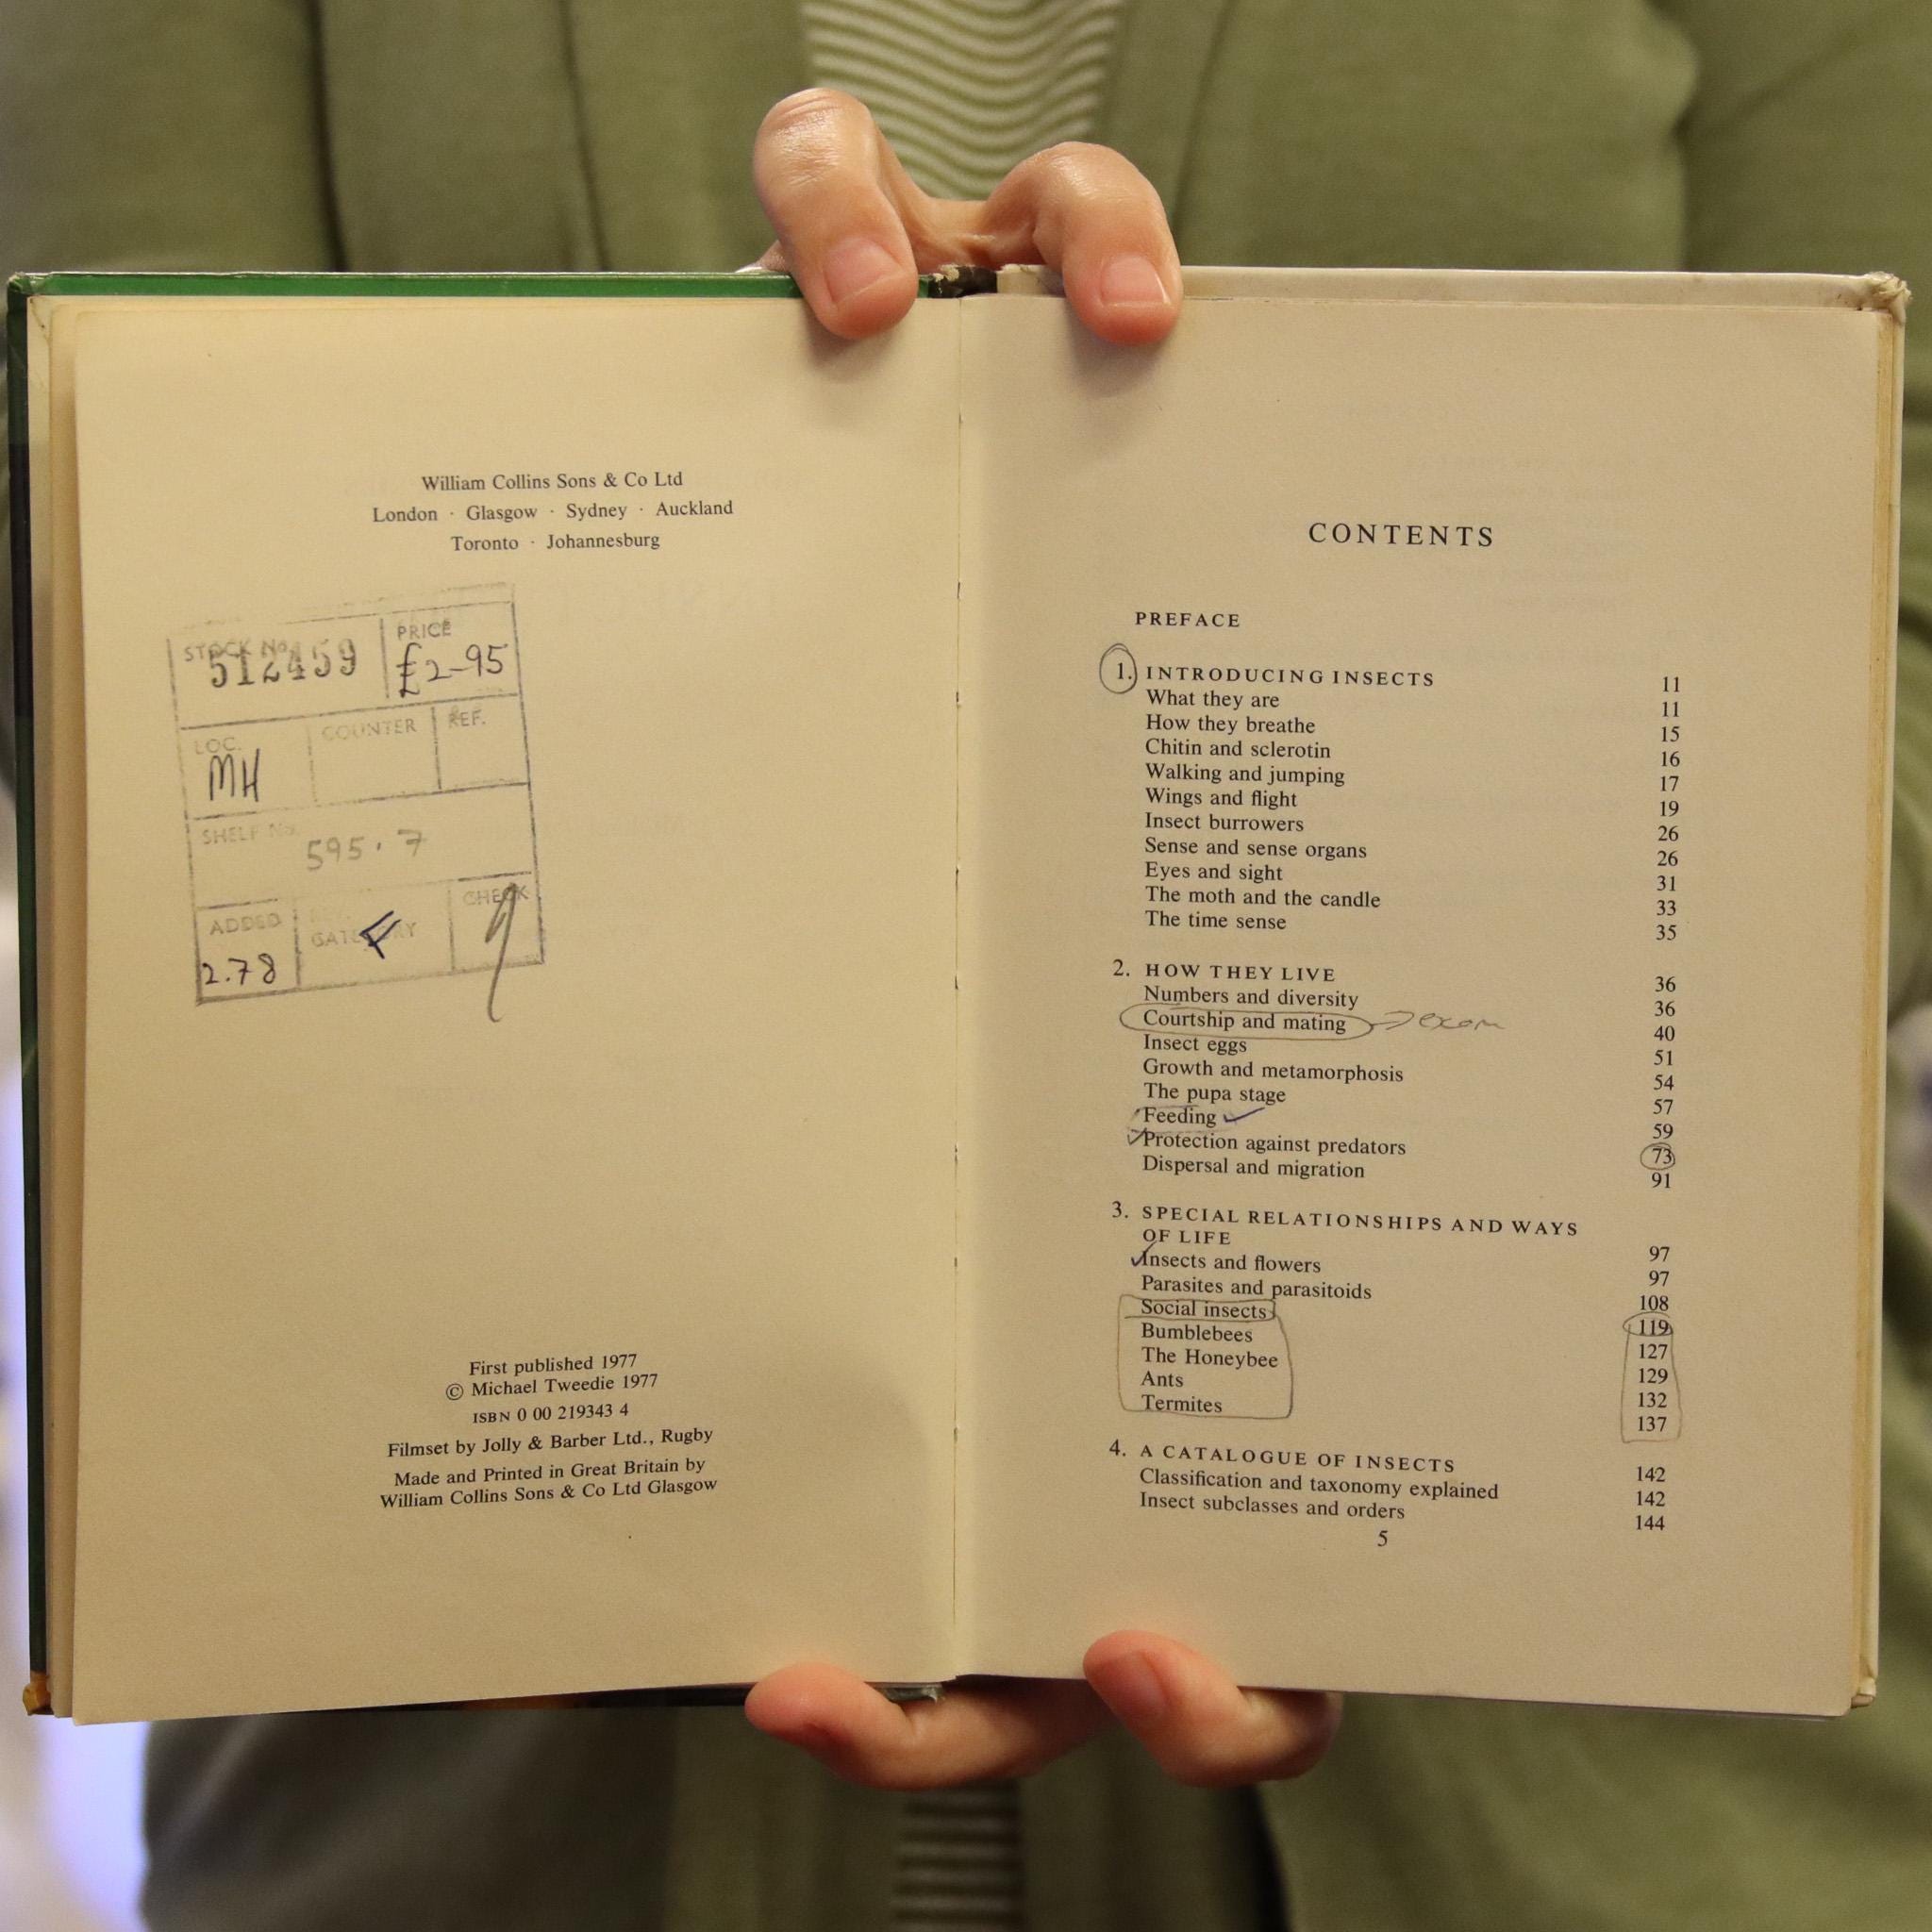 William Collins Sons & Co Ltd
London · Glasgow · Sydney · Auckland
Toronto · Johannesburg
STOCK No. PRICE
512459 £2-95
LOC. COUNTER REF.
MH
SHELF No. 595.7
ADDED CATEGORY CHECK
2.78 F
First published 1977
© Michael Tweedie 1977
ISBN 0 00 219343 4
Filmset by Jolly & Barber Ltd., Rugby
Made and Printed in Great Britain by
William Collins Sons & Co Ltd Glasgow
CONTENTS
PREFACE
1. INTRODUCING INSECTS 11
What they are 11
How they breathe 15
Chitin and sclerotin 16
Walking and jumping 17
Wings and flight 19
Insect burrowers 26
Sense and sense organs 26
Eyes and sight 31
The moth and the candle 33
The time sense 35
2. HOW THEY LIVE 36
Numbers and diversity 36
Courtship and mating → exam 40
Insect eggs 51
Growth and metamorphosis 54
The pupa stage 57
Feeding ✓ 59
✓ Protection against predators 73
Dispersal and migration 91
3. SPECIAL RELATIONSHIPS AND WAYS
OF LIFE 97
✓ Insects and flowers 97
Parasites and parasitoids 108
Social insects 119
Bumblebees 127
The Honeybee 129
Ants 132
Termites 137
4. A CATALOGUE OF INSECTS 142
Classification and taxonomy explained 142
Insect subclasses and orders 144
5